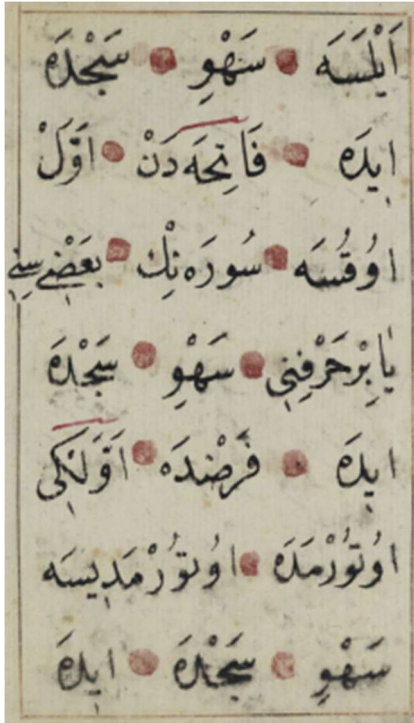 اَيْلَسَه سَهْوِ سَجْدَه
ايدَه فَاتِحَه دَنْ اَوَّلْ
اوُقُسَه سُورَه نِكْ بَعَضْيِ سِنِي
يَا بِرْحَرْفِنِي سَهْوِ سَجْدَه
ايدَه فَرْضْدَه اَوَّلْكِي
اوُتوُرْمَدَه اوُتوُرْمَدِيسَه
سَهْوِ سَجْدَه ايدَه